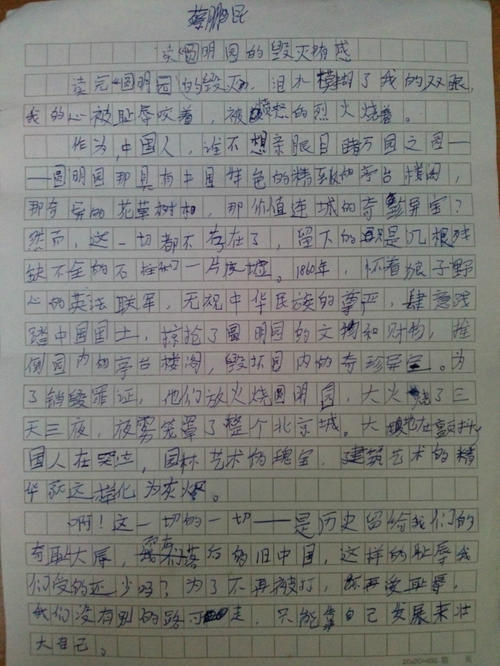 蔡鹏昆
读《圆明园的毁灭》有感
读完《圆明园》的毁灭，泪水模糊了我的双眼，
我的心被耻辱咬着，被愤怒的烈火烧着。
作为中国人，谁不想亲眼目睹万园之园—
—圆明园那具有中国特色的精致的亭台楼阁，
那奇异的花草树木，那价值连城的奇珍异宝？
然而，这一切都不存在了，留下的只是几根残
缺不全的石柱和一片废墟。1860年，怀着狼子野
心的英法联军，无视中华民族的尊严，肆意践
踏中国国土，掠抢了圆明园的文物和财物，推
倒园内的亭台楼阁，毁坏园内的奇珍异宝。为
了销毁罪证，他们放火烧圆明园，大火烧了三
天三夜，夜雾笼罩了整个北京城。大地在颤抖
国人在哭泣，园林艺术的瑰宝，建筑艺术的精
华就这样化为灰烬。
啊！这一切的一切——是历史留给我们的
奇耻大辱，落后的旧中国，这样的耻辱我
们受的还少吗？为了不再被打，不再受耻辱，
我们没有别的路可走，只能靠自己发展来壮
大自己。